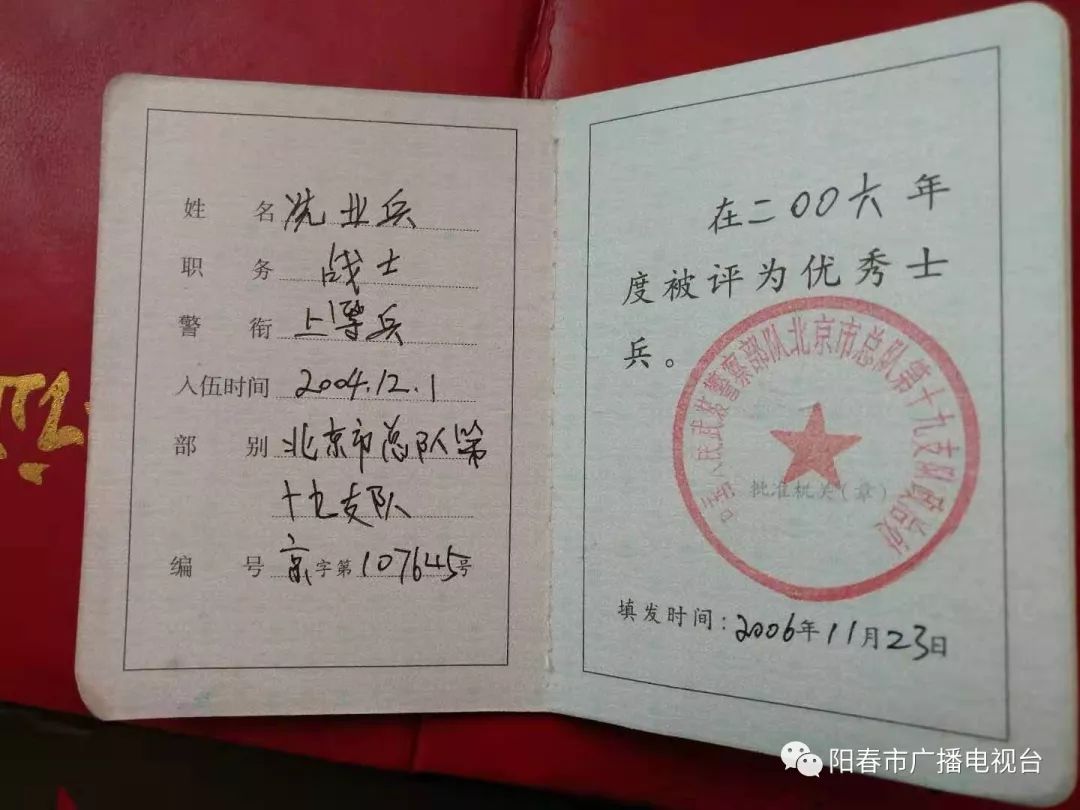 姓名冼业兵
职务战士
警衔上等兵
入伍时间2004.12.1
部别北京市总队第
十九支队
编号京字第107645号
在二00六年
度被评为优秀士
兵。
人民武装警察部队北京市总队第十九支队政治处
批准机关(章)
填发时间:2006年11月23日
阳春市广播电视台